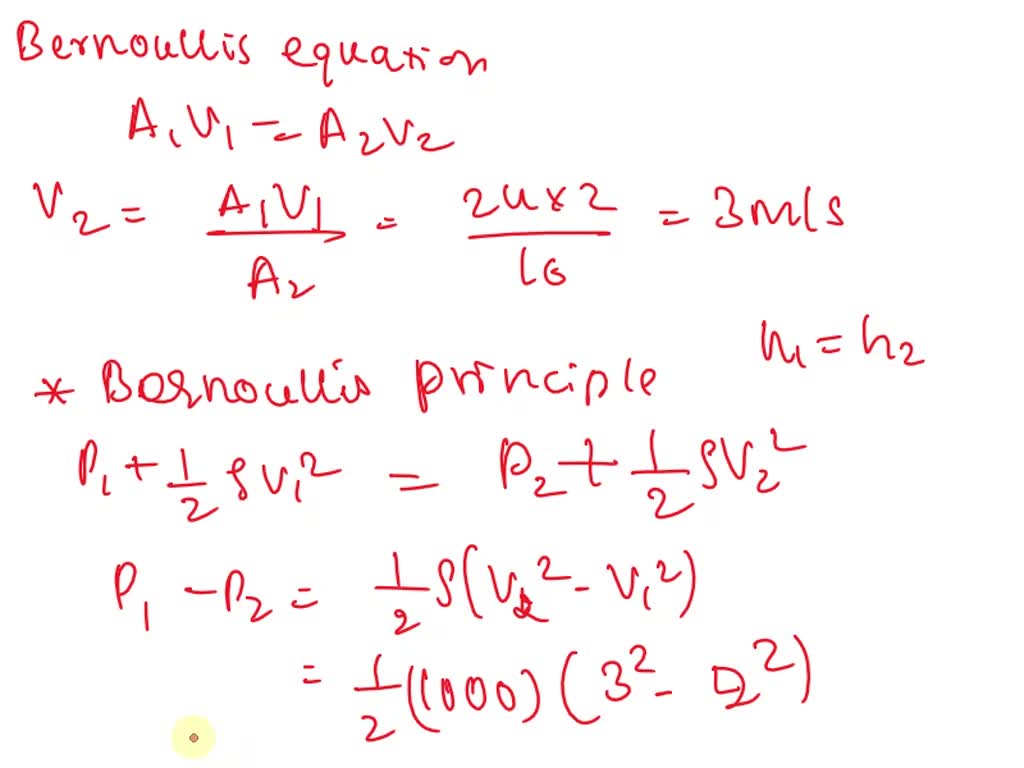 Bernoullis equation
A₁V₁ = A₂V₂
V₂ = A₁V₁/A₂ = 24×2/16 = 3m/s
h₁ = h₂
* Bernoullis principle
P₁ + 1/2 ρV₁² = P₂ + 1/2 ρV₂²
P₁ - P₂ = 1/2 ρ(V₂² - V₁²)
= 1/2 (1000) (3² - 2²)